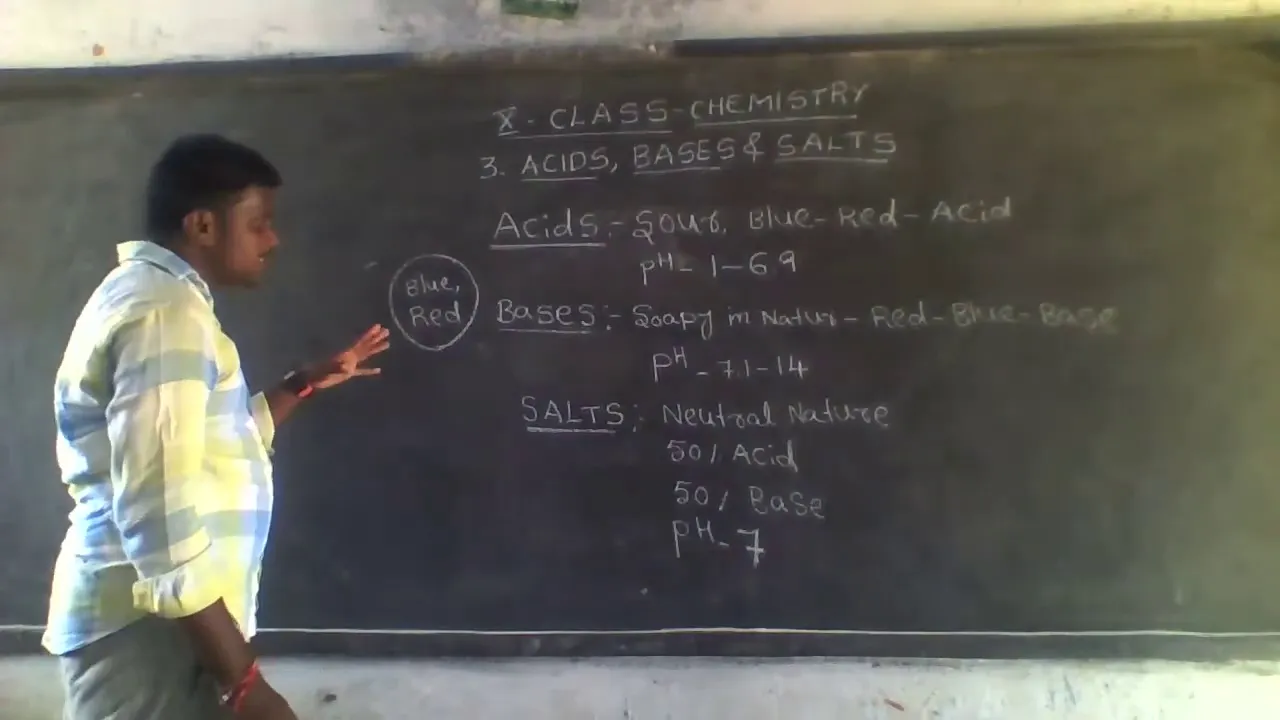 X - CLASS - CHEMISTRY
3. ACIDS, BASES & SALTS
Acids :- Sour, Blue - Red - Acid
pH - 1 - 6.9
Blue,
Red
Bases :- Soapy in Natur - Red - Blue - Base
PH - 7.1 - 14
SALTS :- Neutral Nature
50 % Acid
50 % Base
PH - 7